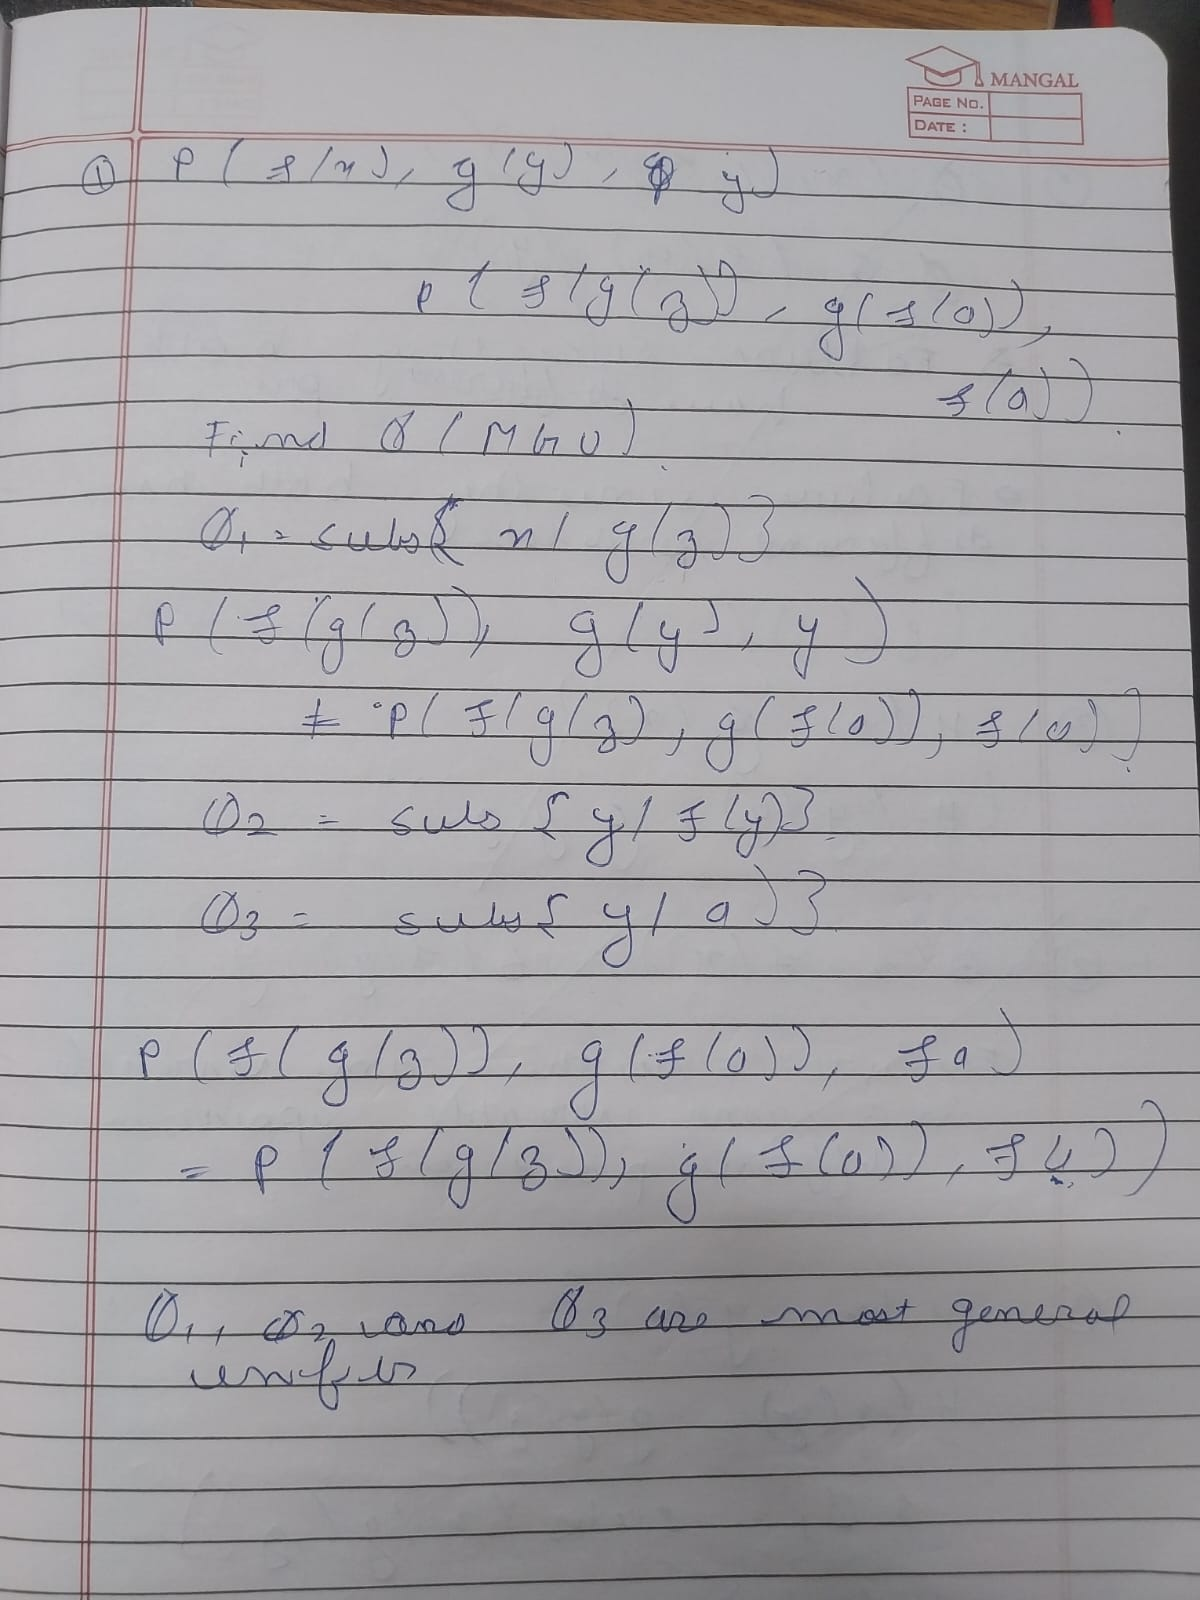 MANGAL
PAGE NO.
DATE :
① P ( f(x), g(y), y)
P ( f(g(z)), g(f(a)),
f(a))
Find θ (MGU)
θ1 = subs{ x/ g(z)}
P (f(g(z)), g(y), y)
≠ P( f(g(z), g(f(a)), f(a))
θ2 = subs { y/ f(y)}
θ3 = subs{ y/ a)}
P (f( g(z)), g(f(a)), fa)
= P ( f(g(z)), g( f(a)), f
θ1, θ2 and θ3 are most general